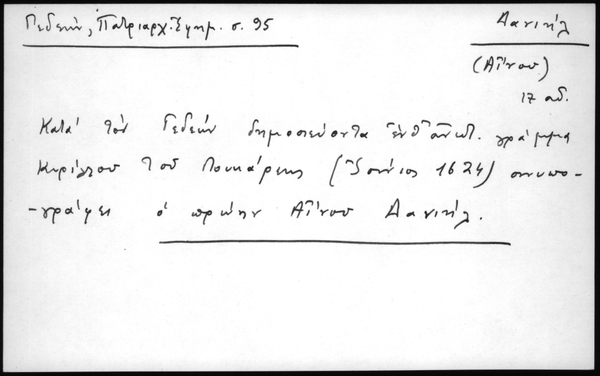 Γεδεών, Πατριαρχ. Ἐφημ. σ. 95
Δανιήλ
(Αἴνου)
17 αἰ.
Κατά τόν Γεδεών δημοσιεύοντα ἐνθ' ἀνωτ. γράμμα
Κυρίλλου τοῦ Λουκάρεως (Ἰούνιος 1624) συνυπο-
-γράφει ὁ πρώην Αἴνου Δανιήλ.